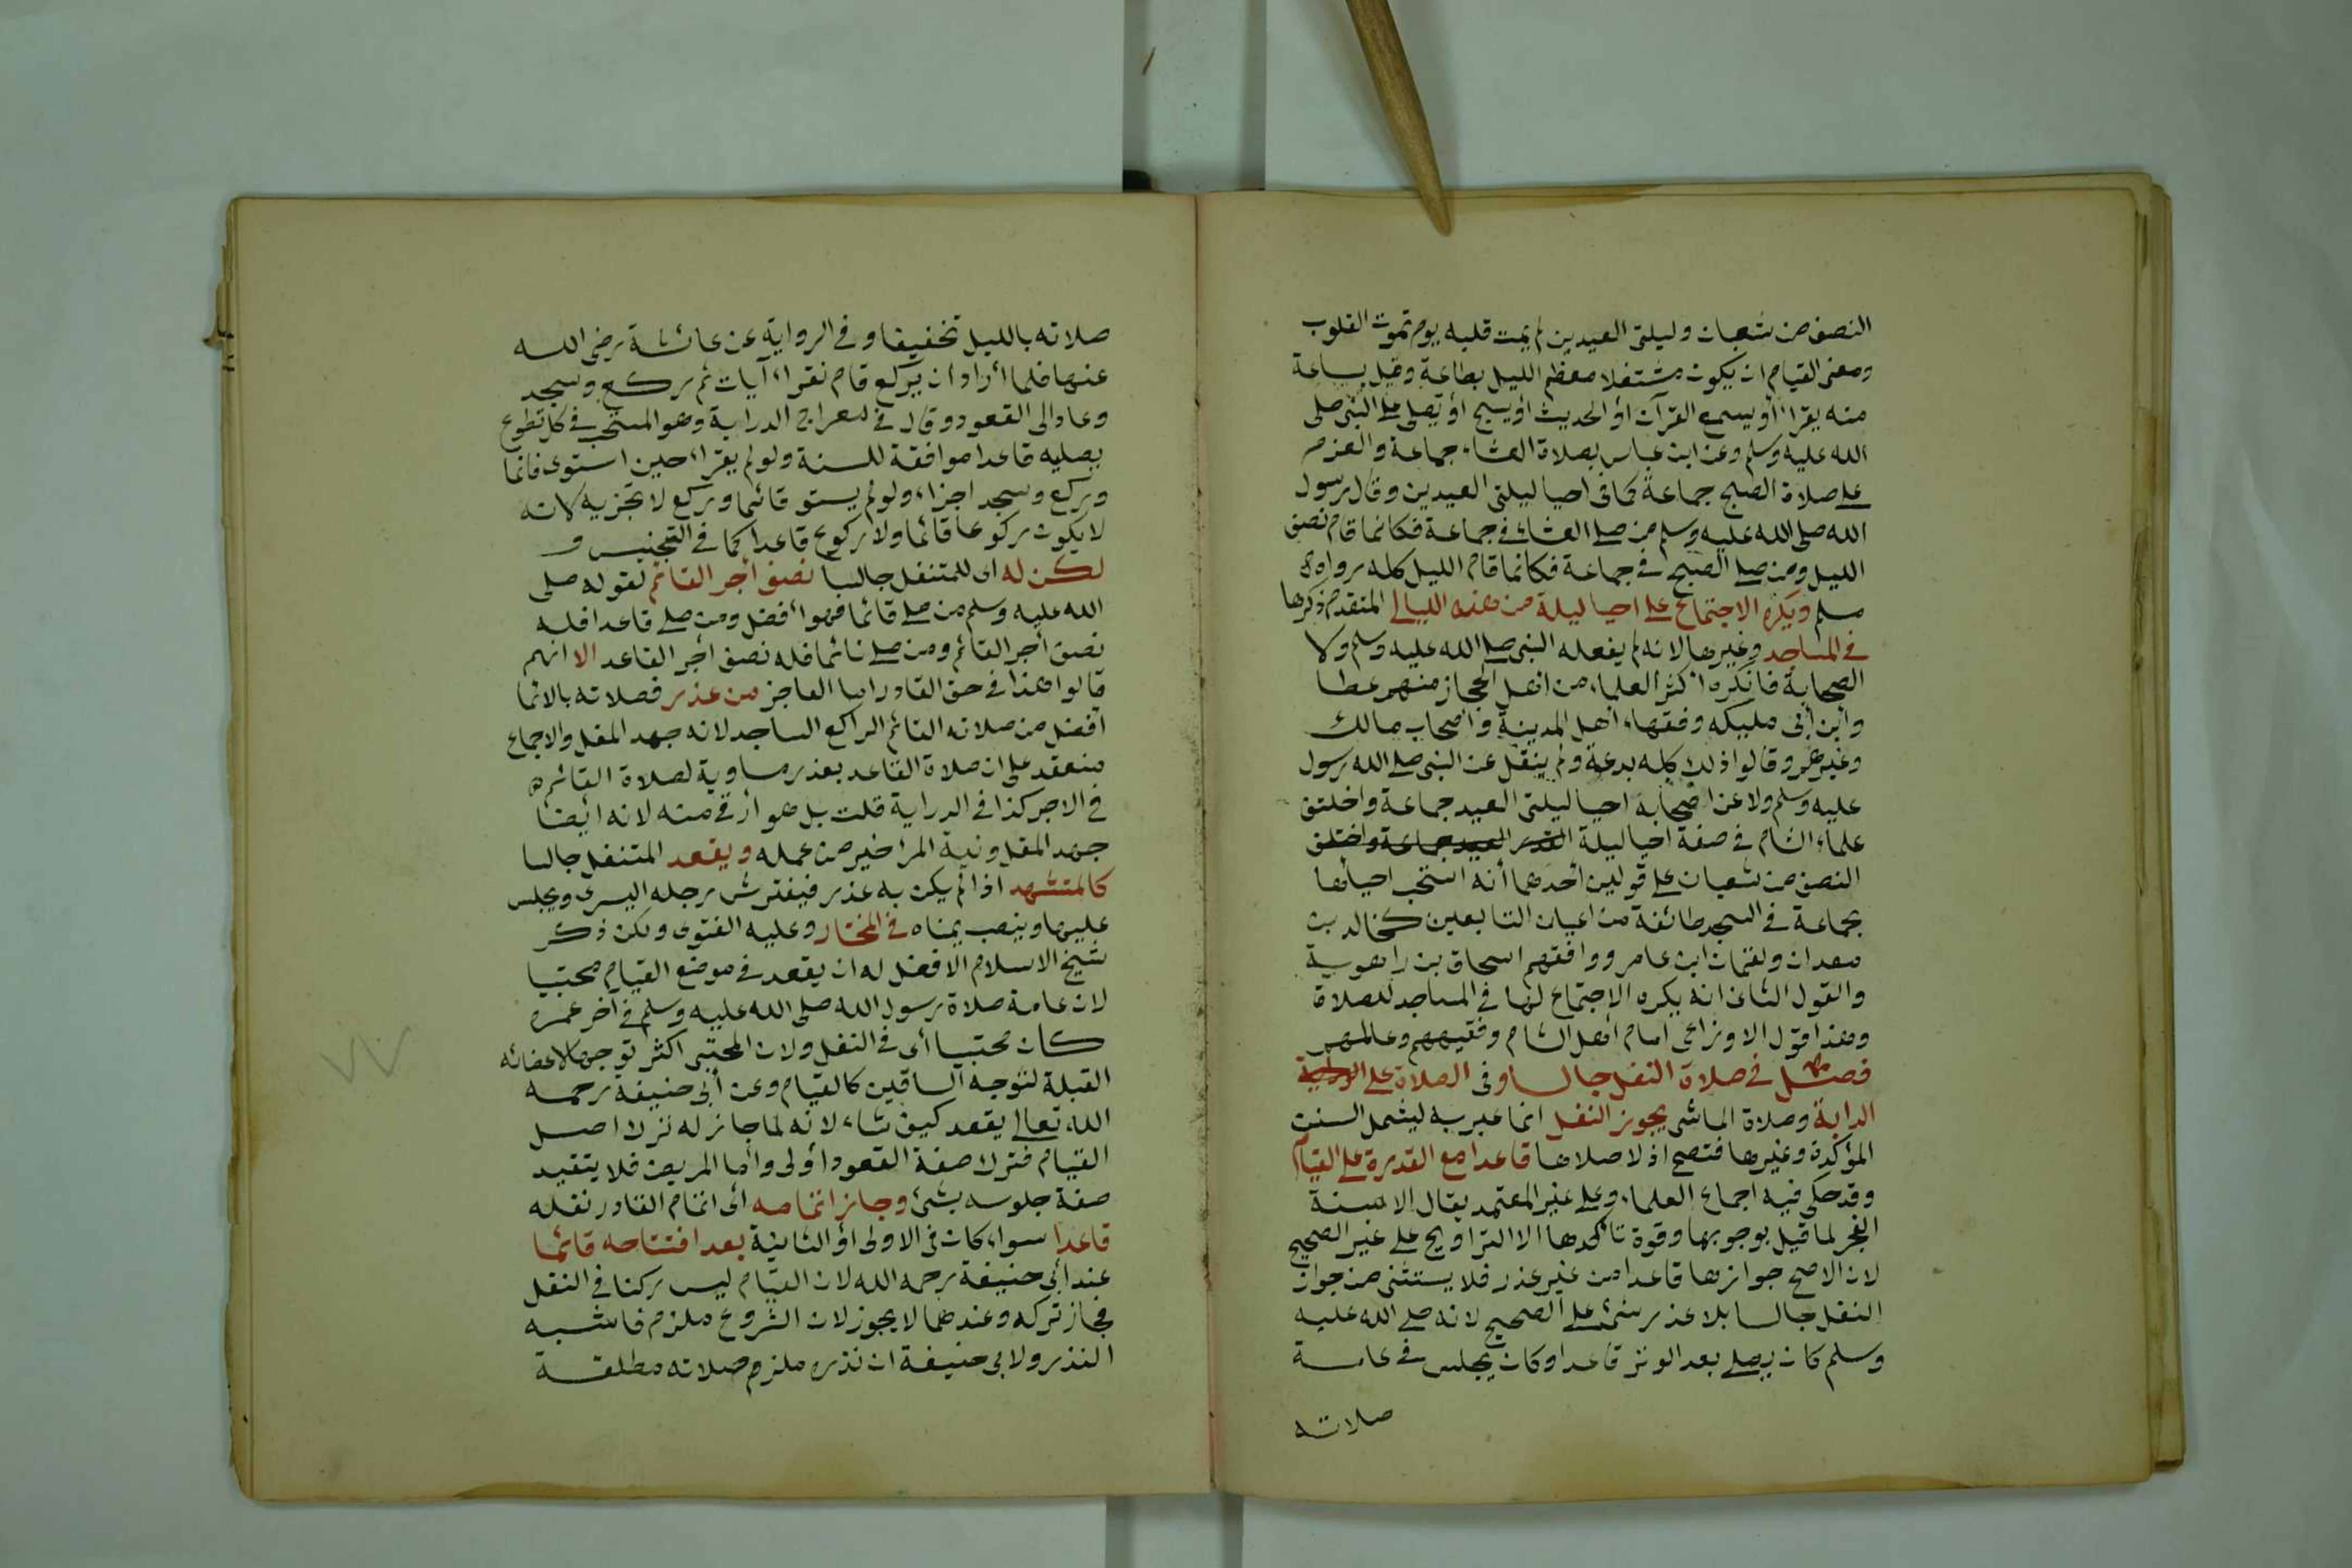 النصف من شعبان وليلتى العيدين لم يمت قلبه يوم تموت القلوب
ومعنى القيام ان يكون مشتغلا معظم الليل بطاعة وقيل بساعة
منه يقرأ أو يسمع القرآن أو الحديث أو يسبح أو يصلى على النبى صلى
الله عليه وسلم وعن ابن عباس بصلاة العشاء جماعة والعزم
على صلاة الصبح جماعة كما فى احيا ليلتى العيدين وقال رسول
الله صلى الله عليه وسلم من صلى العشاء فى جماعة فكانما قام نصف
الليل ومن صلى الصبح فى جماعة فكانما قام الليل كله رواه
مسلم ويكره الاجتماع على احيا ليلة من هذه الليالى المتقدم ذكرها
فى المساجد وغيرها لانه لم يفعله النبى صلى الله عليه وسلم ولا
الصحابة فانكره اكثر العلماء من اهل الحجاز منهم عطا
وابن أبى مليكه وفقهاء اهل المدينة واصحاب مالك
وغيرهم وقالوا ذلك كله بدعة ولم ينقل عن النبى صلى الله رسول
عليه وسلم ولا عن اصحابه احيا ليلتى العيد جماعة واختلف
علماء الشام فى صفة احيا ليلة القدر العيد جماعة واختلف
النصف من شعبان على قولين أحدهما أنه استحب احياها
بجماعة فى المسجد طائفة من اعيان التابعين كخالد بن
معدان ولقمان ابن عامر ووافقهم اسحاق بن راهوية
والقول الثانى انه يكره الاجتماع لها فى المساجد للصلاة
وهذا قول الاوزاعى امام اهل الشام وفقيههم وعالمهم
فصل فى صلاة النفل جالسا وفى الصلاة على
الدابة وصلاة الماشى يجوز النفل انما عبر به ليشمل السنن
المؤكدة وغيرها فتصح اذ لا صلاها قاعدا مع القدرة على القيام
وقد حكى فيه اجماع العلماء وعلى غير المعتمد يقال الا سنة
الفجر لما قيل بوجوبها وقوة تأكدها الا التراويح على غير الصحيح
لان الاصح جوازها قاعدا من غير عذر فلا يستثنى من جواز
النفل جالسا بلا عذر شئ على الصحيح لانه صلى الله عليه
وسلم كان يصلى بعد الوتر قاعدا وكان يجلس فى عامة
صلاته
صلاته بالليل تخفيفا وفى الرواية عن عائشة رضى الله
عنها فلما أراد ان يركع قام فقراء آيات ثم ركع وسجد
وعاد الى القعود وقال فى معراج الدراية وهو المستحب فى كل تطوع
يصليه قاعدا موافقة للسنة ولو لم يقراء حين استوى قائما
وركع وسجد اجزاء ولو لم يستو قائما وركع لا تجزيه لانه
لا يكون ركوعا قائما ولا ركوع قاعدا كما فى التجنيس و
لكن له اى للمتنفل جالسا نصف أجر القائم لقوله صلى
الله عليه وسلم من صلى قائما فهو أفضل ومن صلى قاعدا فله
نصف أجر القائم ومن صلى نائما فله نصف أجر القاعد الا انهم
قالوا هذا فى حق القادر اما العاجز من عذر فصلاته بالايما
افضل من صلاته القائم الراكع الساجد لانه جهد المقل والاجماع
منعقد على ان صلاة القاعد بعذر مساوية لصلاة القائم
فى الاجر كذا فى الدراية قلت بل هو أرقى منه لانه ايضا
جهد المقل ونية المرأ خير من عمله ويقعد المتنفل جالسا
كالمتشهد اذا لم يكن به عذر فيفترش رجله اليسرى ويجلس
عليها وينصب يمناه فى المختار وعليه الفتوى ولكن ذكر
شيخ الاسلام الافضل له ان يقعد فى موضع القيام محتبيا
لان عامة صلاة رسول الله صلى الله عليه وسلم فى آخر عمره
كان محتبيا أى فى النفل ولان المحتبى اكثر توجها لاعضائه
القبلة لتوجه الساقين كالقيام وعن أبى حنيفة رحمه
الله تعالى يقعد كيف شاء لانه لما جاز له ترك اصل
القيام فترك صفة القعود أولى وأما المريض فلا يتقيد
صفة جلوسه بشئ وجاز اتمامه أى اتمام القادر نفله
قاعدا سواء كان فى الاولى أو الثانية بعد افتتاحه قائما
عند أبى حنيفة رحمه الله لان القيام ليس ركنا فى النفل
فجاز تركه وعندهما لا يجوز لان الشروع ملزم فاشبه
النذر ولابى حنيفة ان نذره ملزم صلاته مطلقة